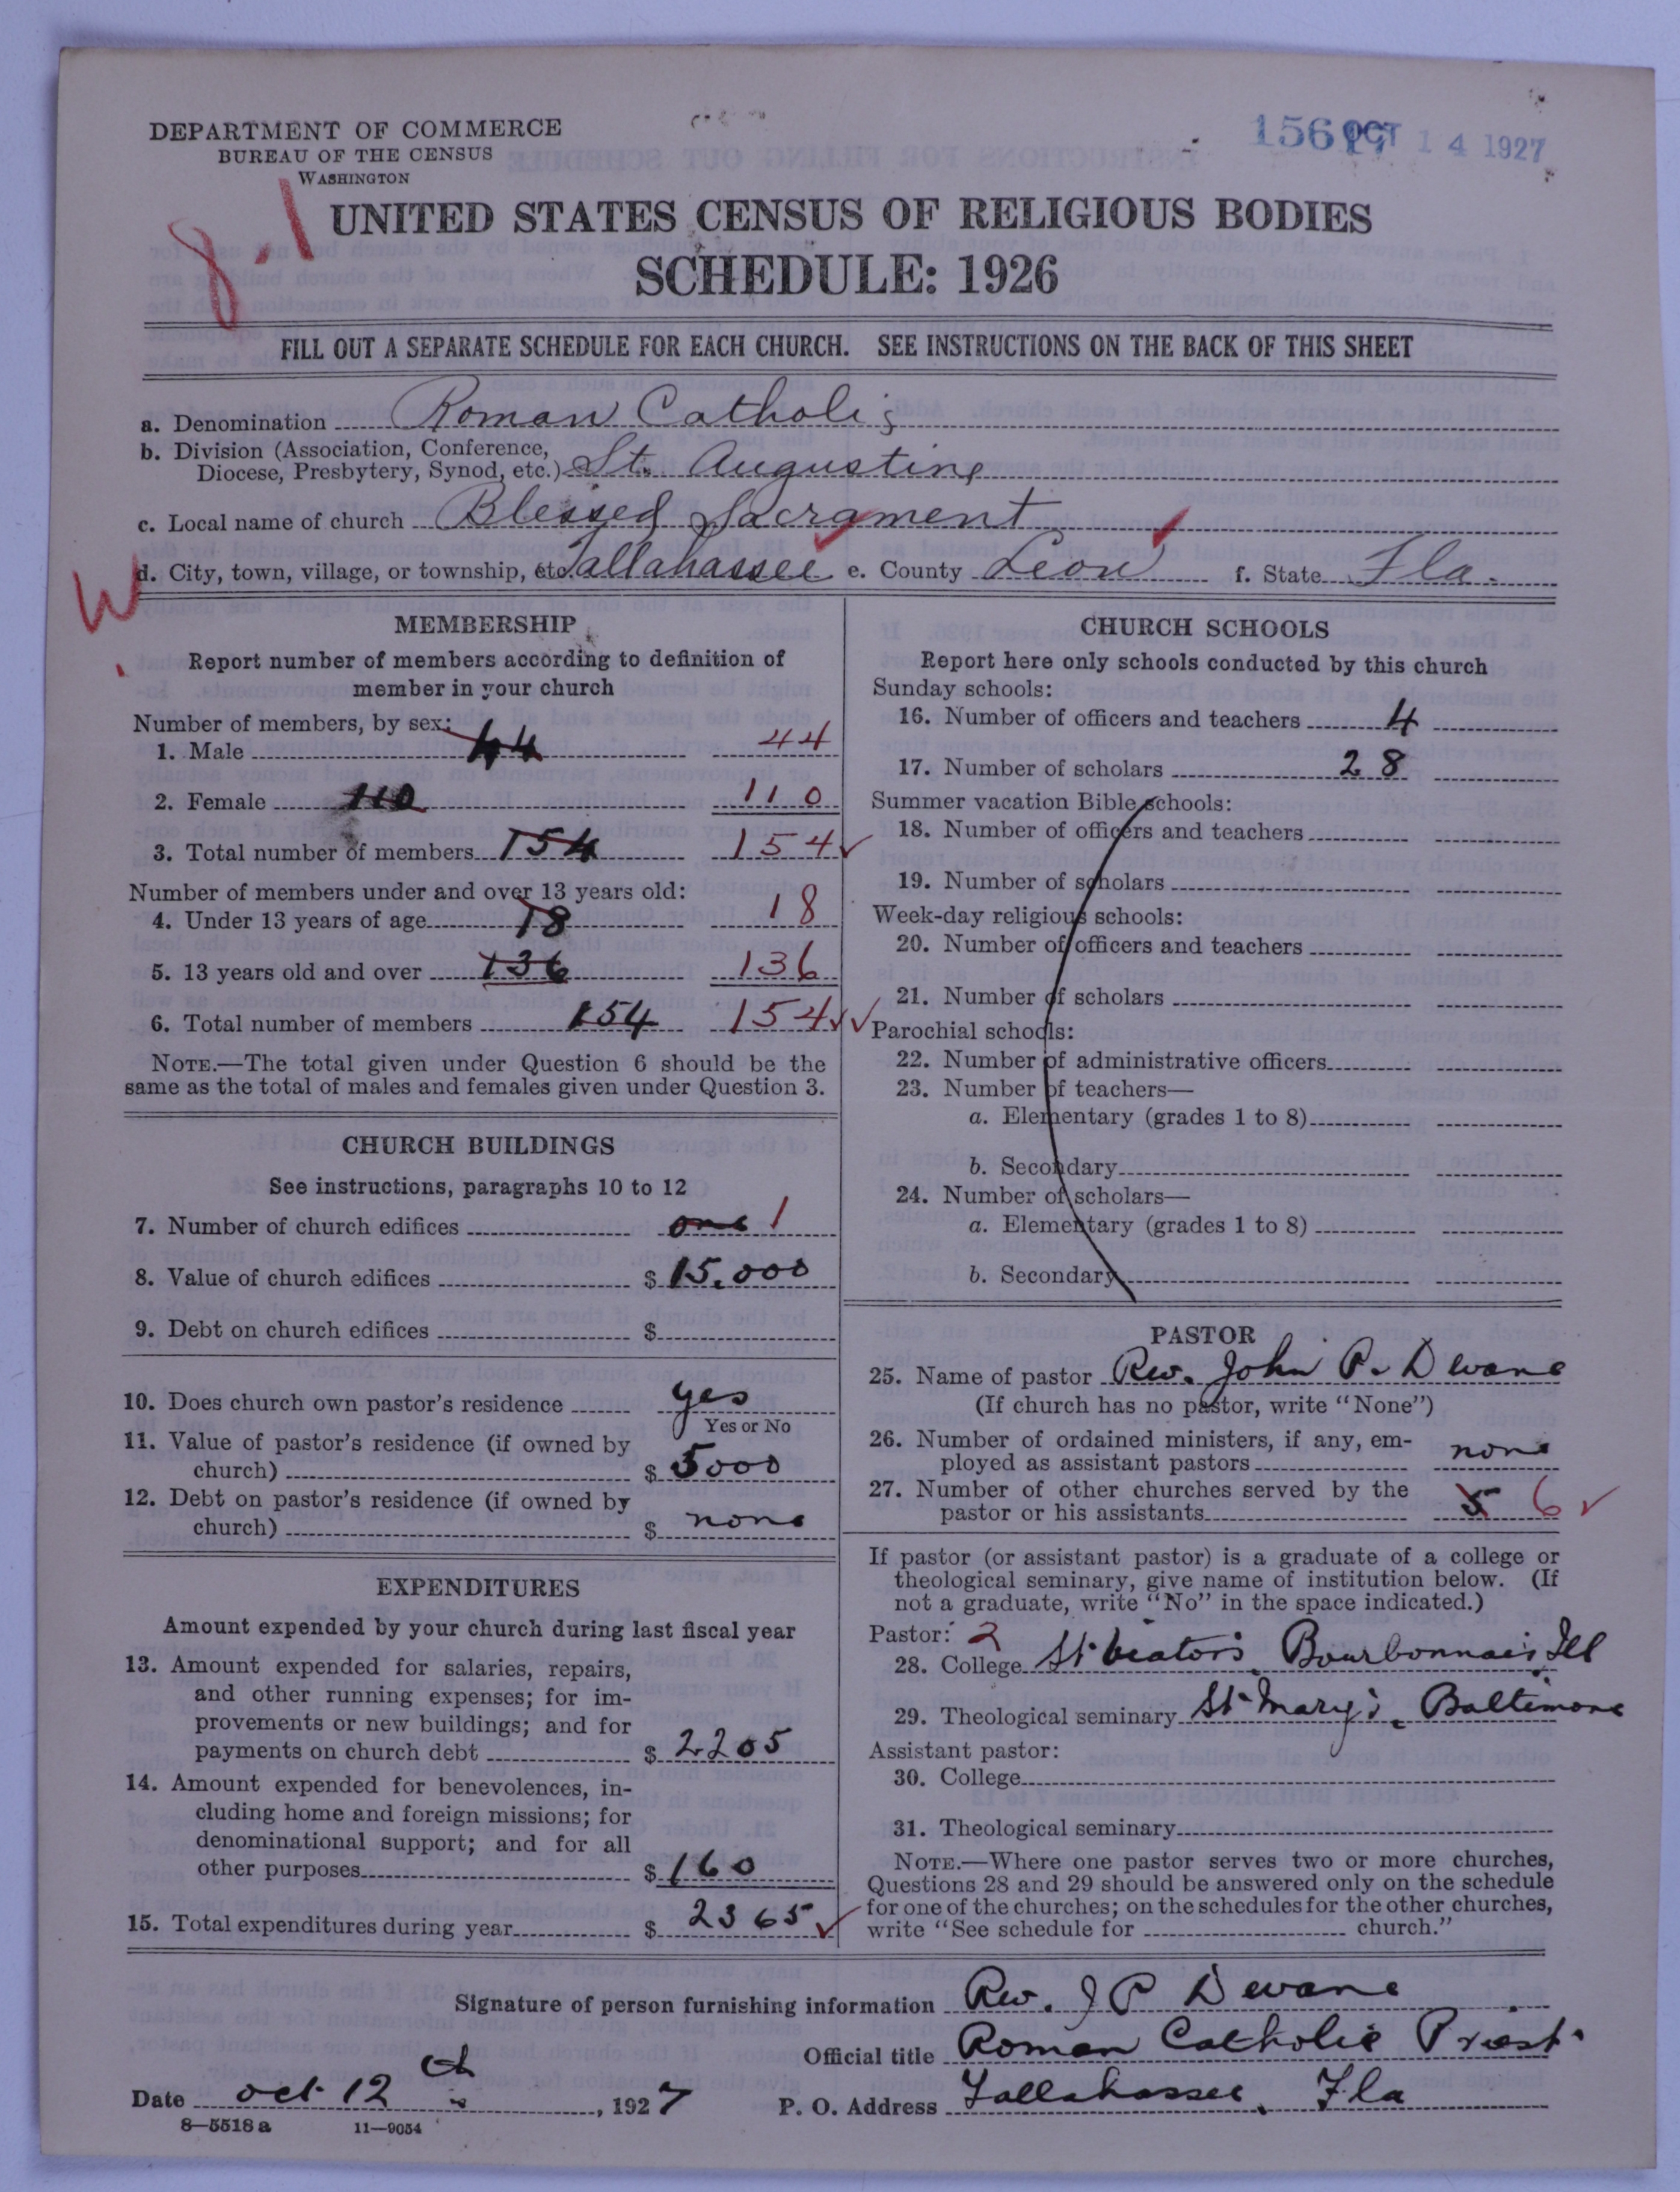 DEPARTMENT OF COMMERCE
BUREAU OF THE CENSUS
WASHINGTON
OCT 14 1927
8.1
UNITED STATES CENSUS OF RELIGIOUS BODIES
SCHEDULE: 1926
FILL OUT A SEPARATE SCHEDULE FOR EACH CHURCH. SEE INSTRUCTIONS ON THE BACK OF THIS SHEET
a. Denomination Roman Catholic
b. Division (Association, Conference,
Diocese, Presbytery, Synod, etc.) St. Augustine
c. Local name of church Blessed Sacrament
W
d. City, town, village, or township, etc. Tallahassee e. County Leon f. State Fla.
MEMBERSHIP
Report number of members according to definition of
member in your church
Number of members, by sex:
1. Male 44 44
2. Female 110 110
3. Total number of members 154 154 ✓
Number of members under and over 13 years old:
4. Under 13 years of age 18 18
5. 13 years old and over 136 136
6. Total number of members 154 154 ✓✓
NOTE.—The total given under Question 6 should be the
same as the total of males and females given under Question 3.
CHURCH BUILDINGS
See instructions, paragraphs 10 to 12
7. Number of church edifices one 1
8. Value of church edifices $ 15.000
9. Debt on church edifices $
10. Does church own pastor's residence yes
Yes or No
11. Value of pastor's residence (if owned by
church) $ 5000
12. Debt on pastor's residence (if owned by
church) $ none
EXPENDITURES
Amount expended by your church during last fiscal year
13. Amount expended for salaries, repairs,
and other running expenses; for im-
provements or new buildings; and for
payments on church debt $ 2205
14. Amount expended for benevolences, in-
cluding home and foreign missions; for
denominational support; and for all
other purposes $ 160
15. Total expenditures during year $ 2365 ✓
CHURCH SCHOOLS
Report here only schools conducted by this church
Sunday schools:
16. Number of officers and teachers 4
17. Number of scholars 28
Summer vacation Bible schools:
18. Number of officers and teachers
19. Number of scholars
Week-day religious schools:
20. Number of officers and teachers
21. Number of scholars
Parochial schools:
22. Number of administrative officers
23. Number of teachers—
a. Elementary (grades 1 to 8)
b. Secondary
24. Number of scholars—
a. Elementary (grades 1 to 8)
b. Secondary
PASTOR
25. Name of pastor Rev. John P. Devane
(If church has no pastor, write "None")
26. Number of ordained ministers, if any, em-
ployed as assistant pastors none
27. Number of other churches served by the
pastor or his assistants 5 6 ✓
If pastor (or assistant pastor) is a graduate of a college or
theological seminary, give name of institution below. (If
not a graduate, write "No" in the space indicated.)
Pastor: 2
28. College St. Viators Bourbonnais, Ill
29. Theological seminary St. Mary's, Baltimore
Assistant pastor:
30. College
31. Theological seminary
NOTE.—Where one pastor serves two or more churches,
Questions 28 and 29 should be answered only on the schedule
for one of the churches; on the schedules for the other churches,
write "See schedule for church."
Signature of person furnishing information Rev. J P Devane
Official title Roman Catholic Priest
Date Oct. 12, 1927 P. O. Address Tallahassee, Fla
8—5518 a 11—9054